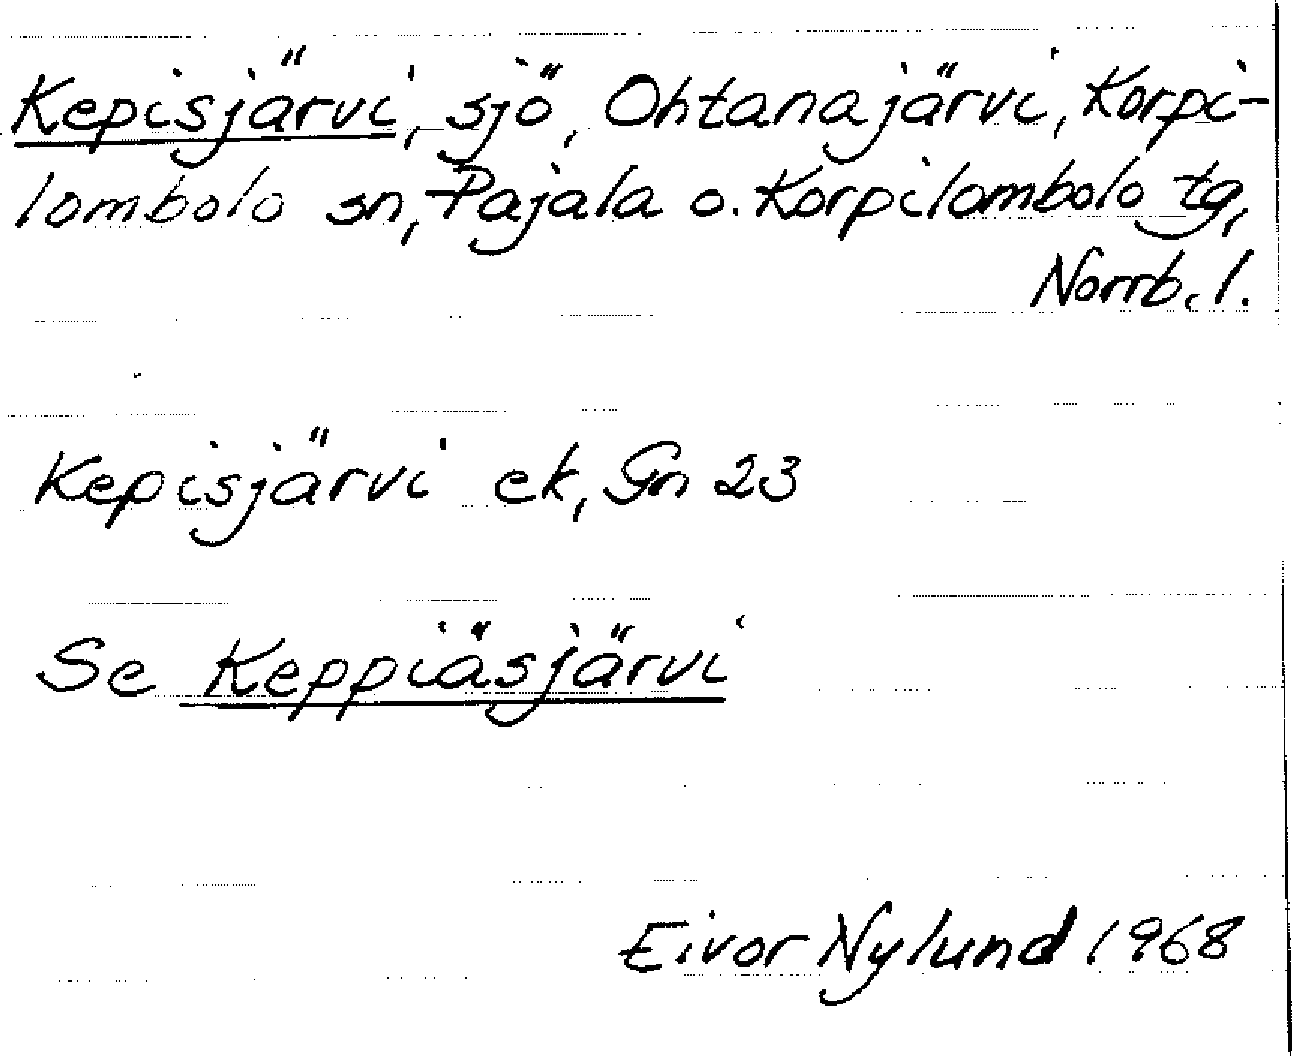 Kepisjärvi, sjö, Ohtanajärvi, Korpi-
lombolo sn, Pajala o. Korpilombolo tg,
Norrb. l.
Kepisjärvi ek, Gn 23
Se Keppiäsjärvi
Eivor Nylund 1968